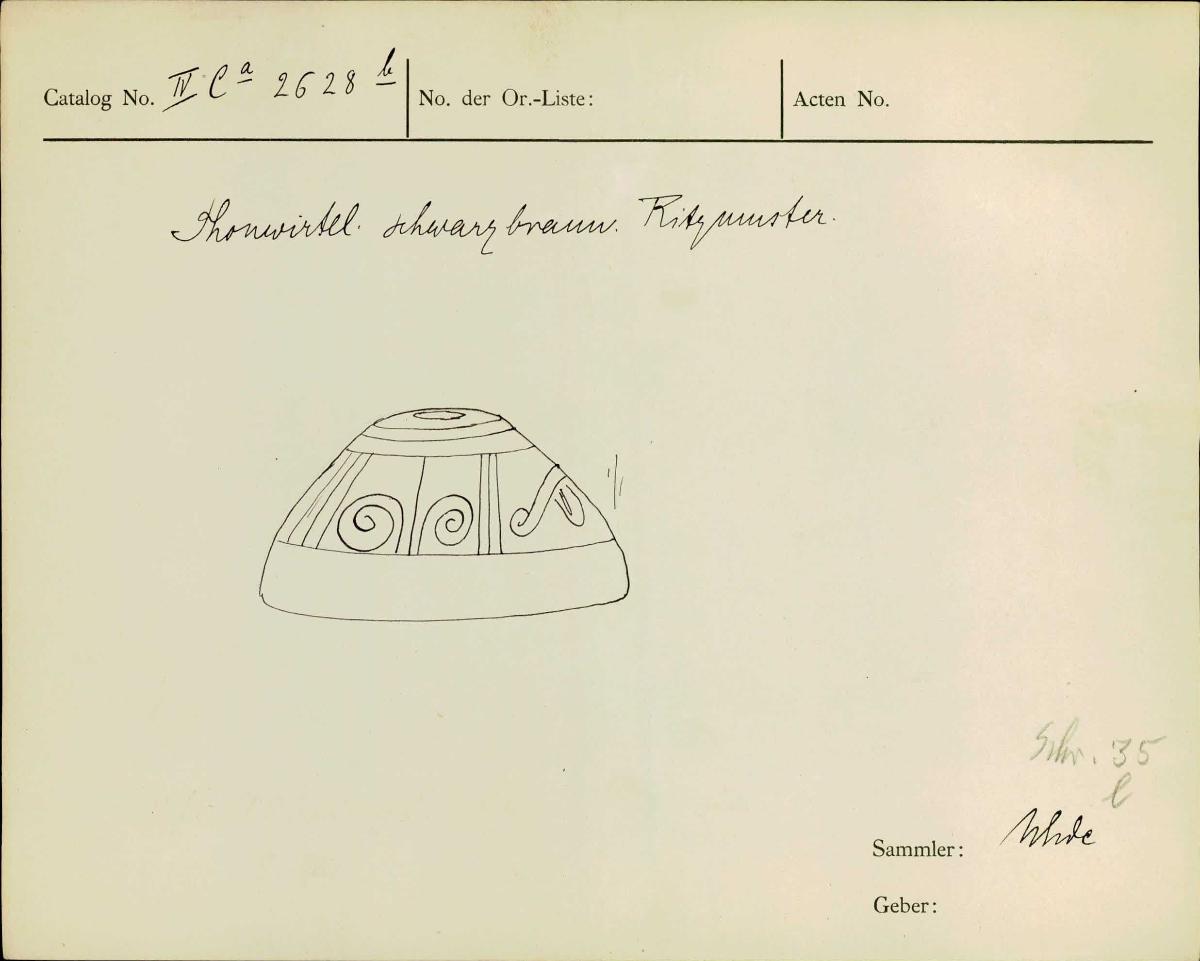 Catalog No. IV Ca 2628 b No. der Or.-Liste: Acten No.
Thonwirtel. schwarzbraun. Ritzmuster.
Schr. 35
l
Sammler: Uhde
Geber: